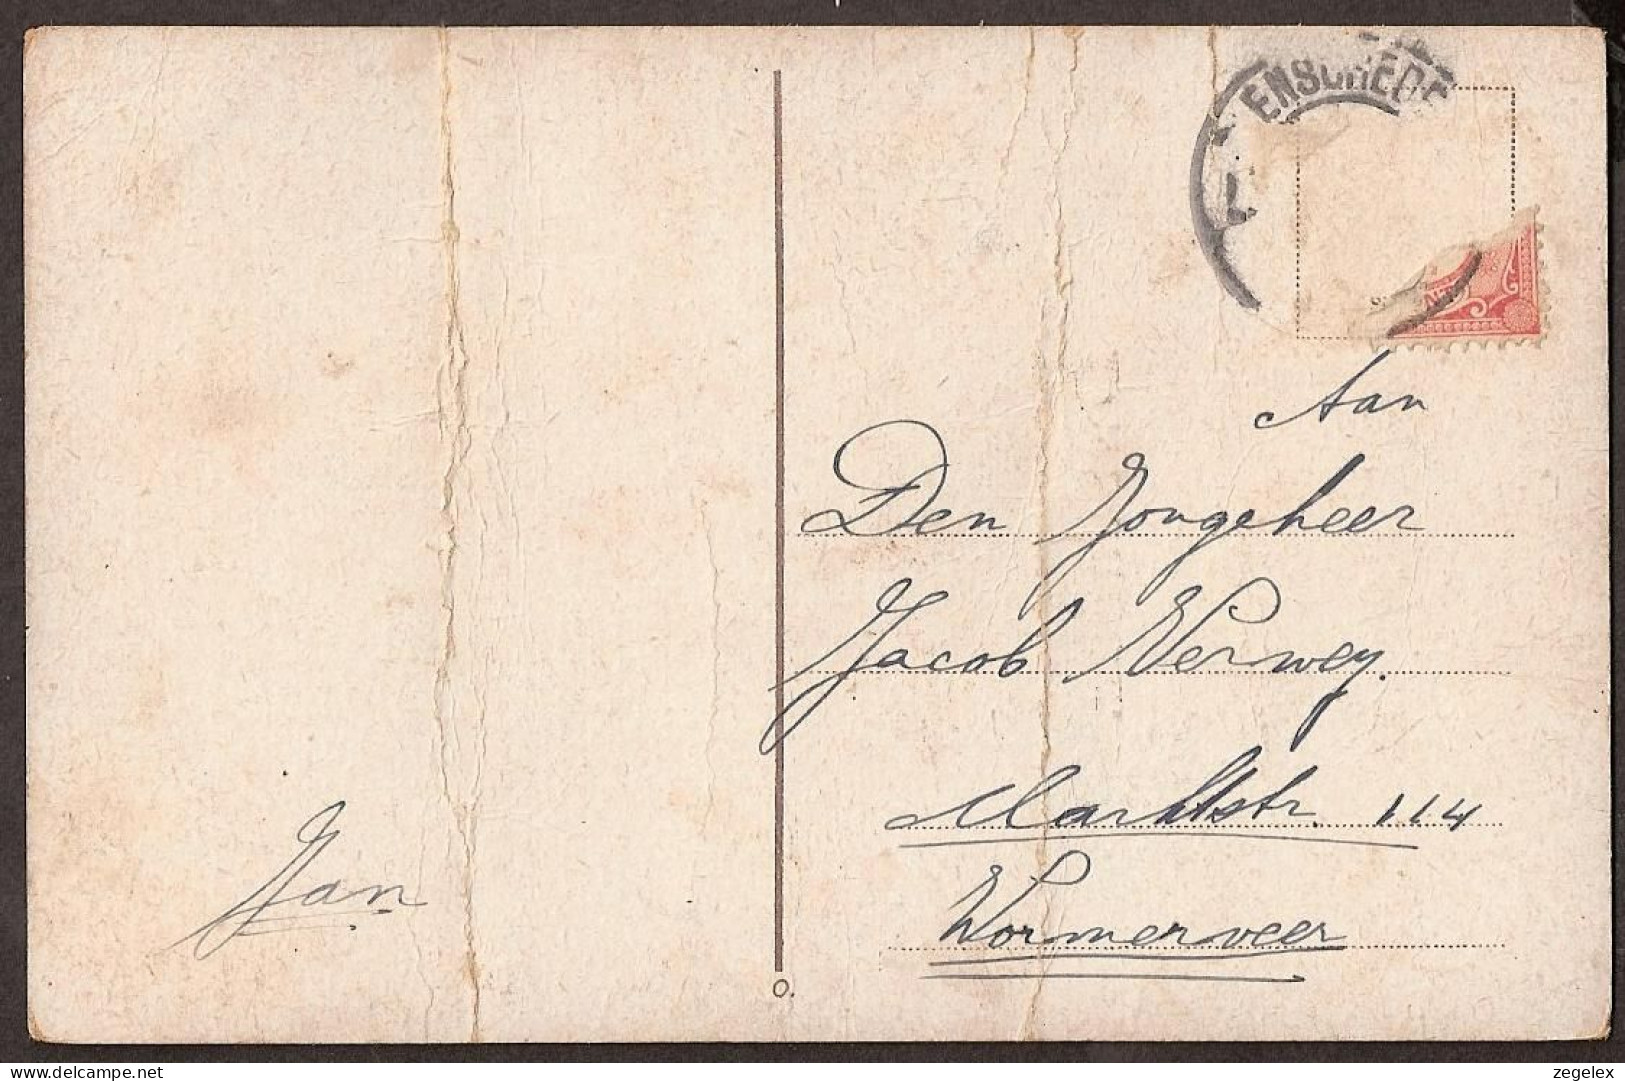 ENSCHEDE
Aan
Den Jongeheer
Jacob Verwey.
Marktstr. 114
Wormerveer
Jan
O.
delcampe.net
zegelex